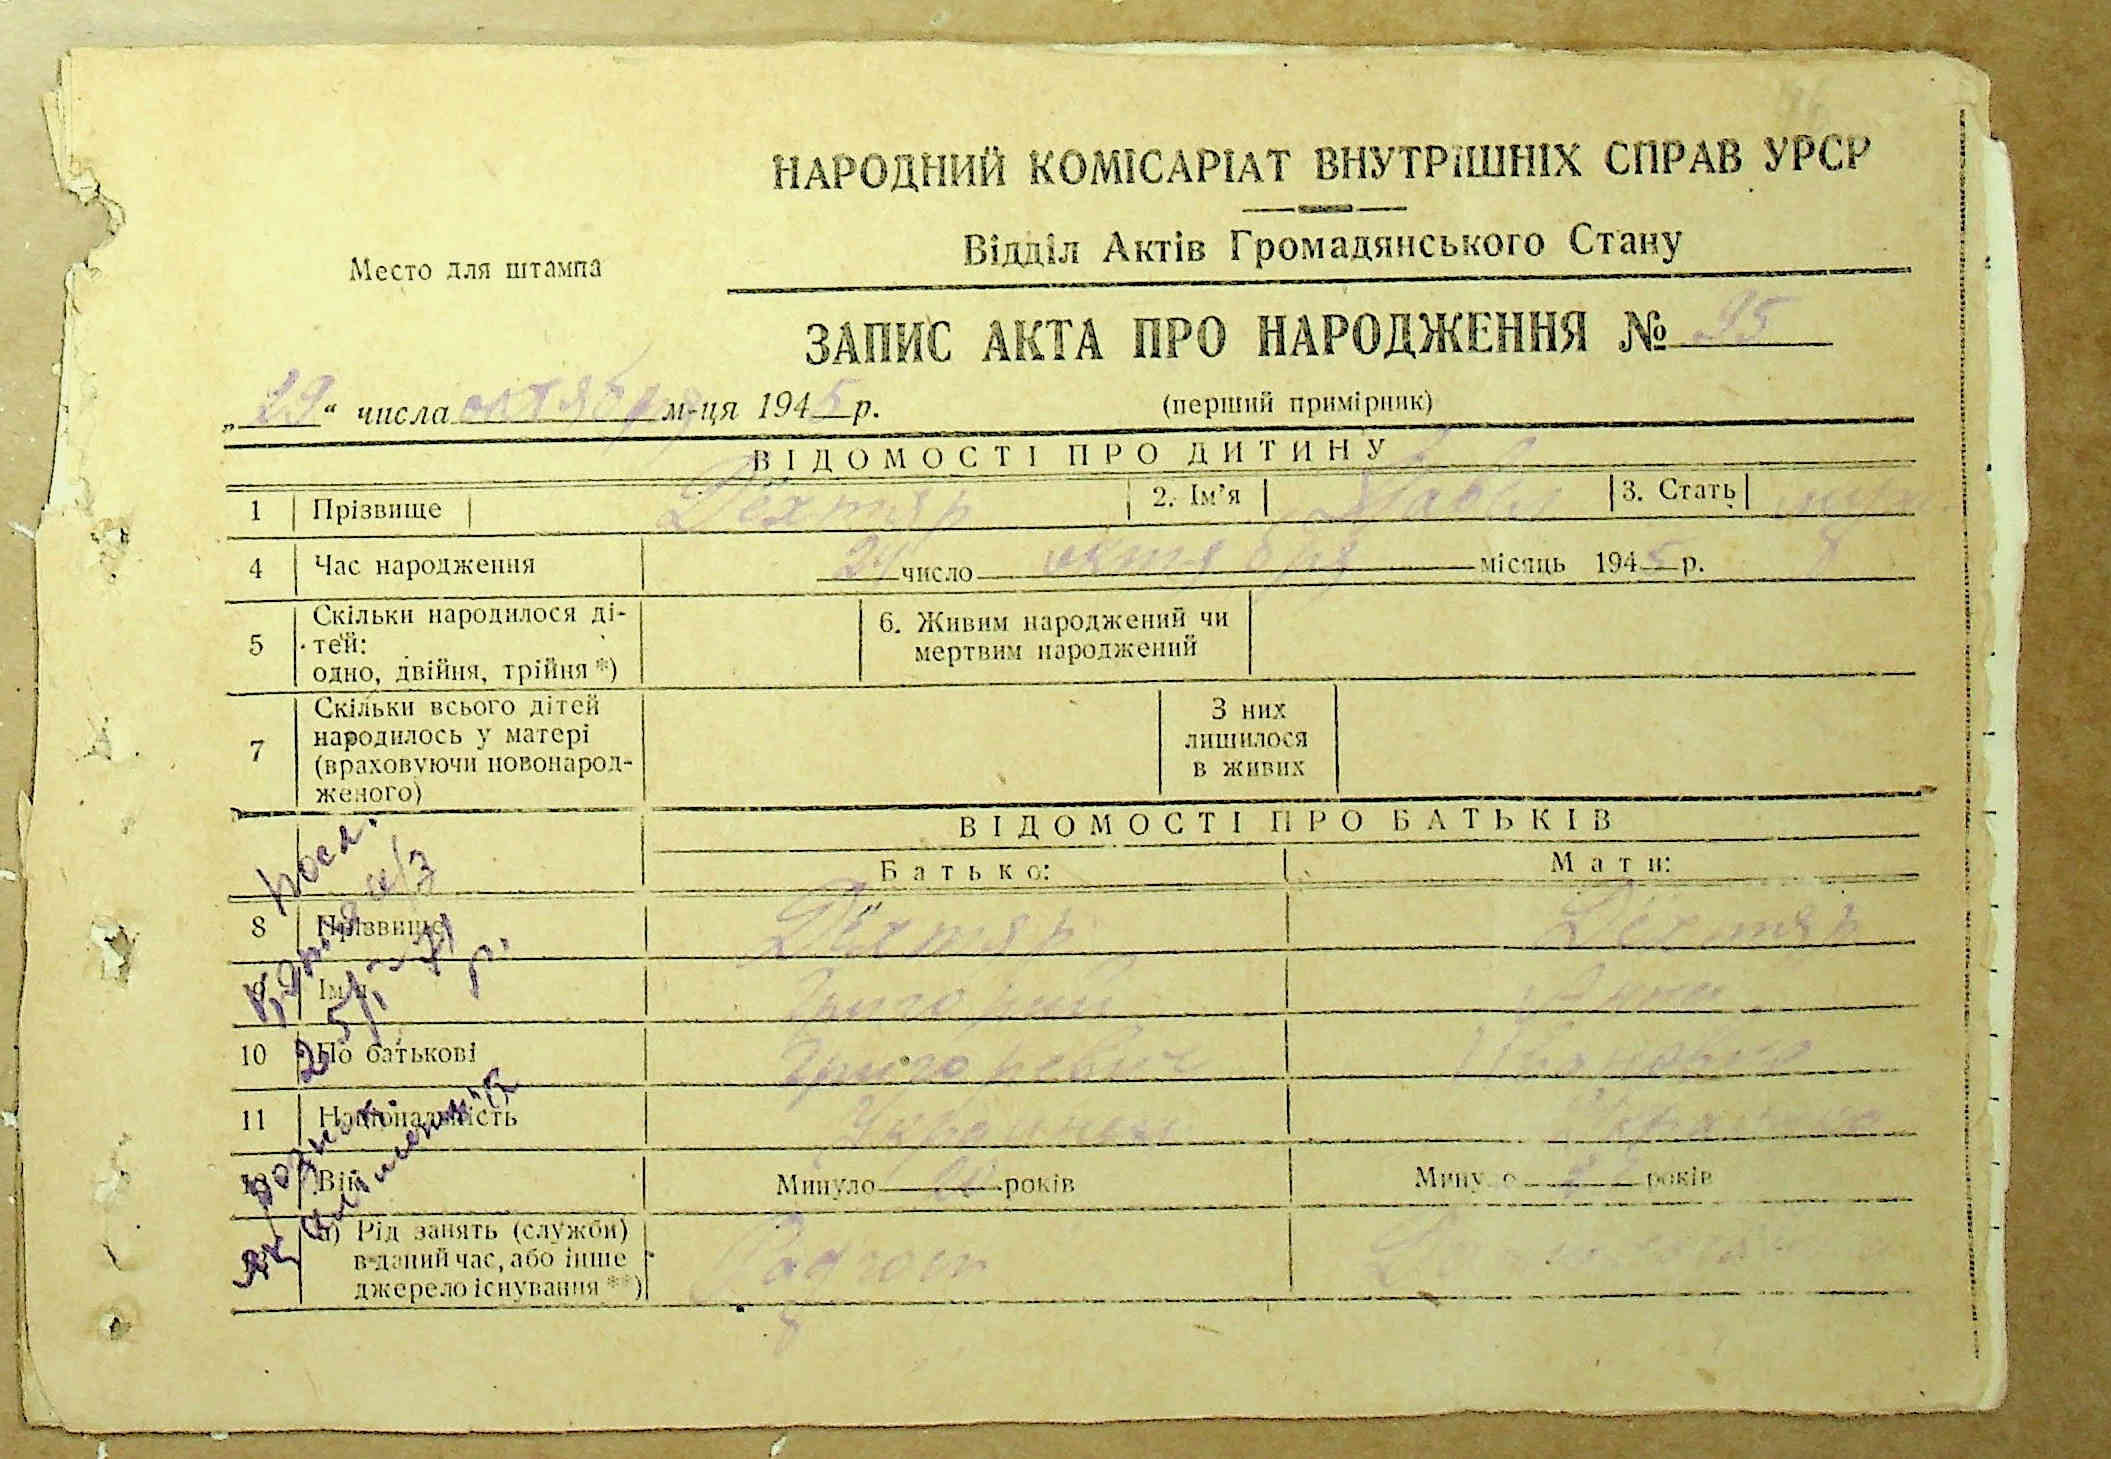 НАРОДНИЙ КОМІСАРІАТ ВНУТРІШНІХ СПРАВ УРСР
Відділ Актів Громадянського Стану
Место для штампа
ЗАПИС АКТА ПРО НАРОДЖЕННЯ № 95
„29“ числа октября м-ця 1945 р. (перший примірник)
ВІДОМОСТІ ПРО ДИТИНУ
1 Прізвище Дехтяр 2. Ім’я Павел 3. Стать муж
4 Час народження 24 число октября місяць 1945 р.
5 Скільки народилося ді-
тей:
одно, двійня, трійня *)
6. Живим народжений чи
мертвим народжений
7 Скільки всього дітей
народилось у матері
(враховуючи новонарод-
женого)
З них
лишилося
в живих
ВІДОМОСТІ ПРО БАТЬКІВ
Батько: Мати:
8 Прізвище Дехтяр Дехтяр
9 Ім’я Григорий Анна
10 По батькові Григоревич Ивановна
11 Національність Украинец Украинка
12 Вік Минуло років Минуло років
а) Рід занять (служби)
в даний час, або інше
джерело існування **)